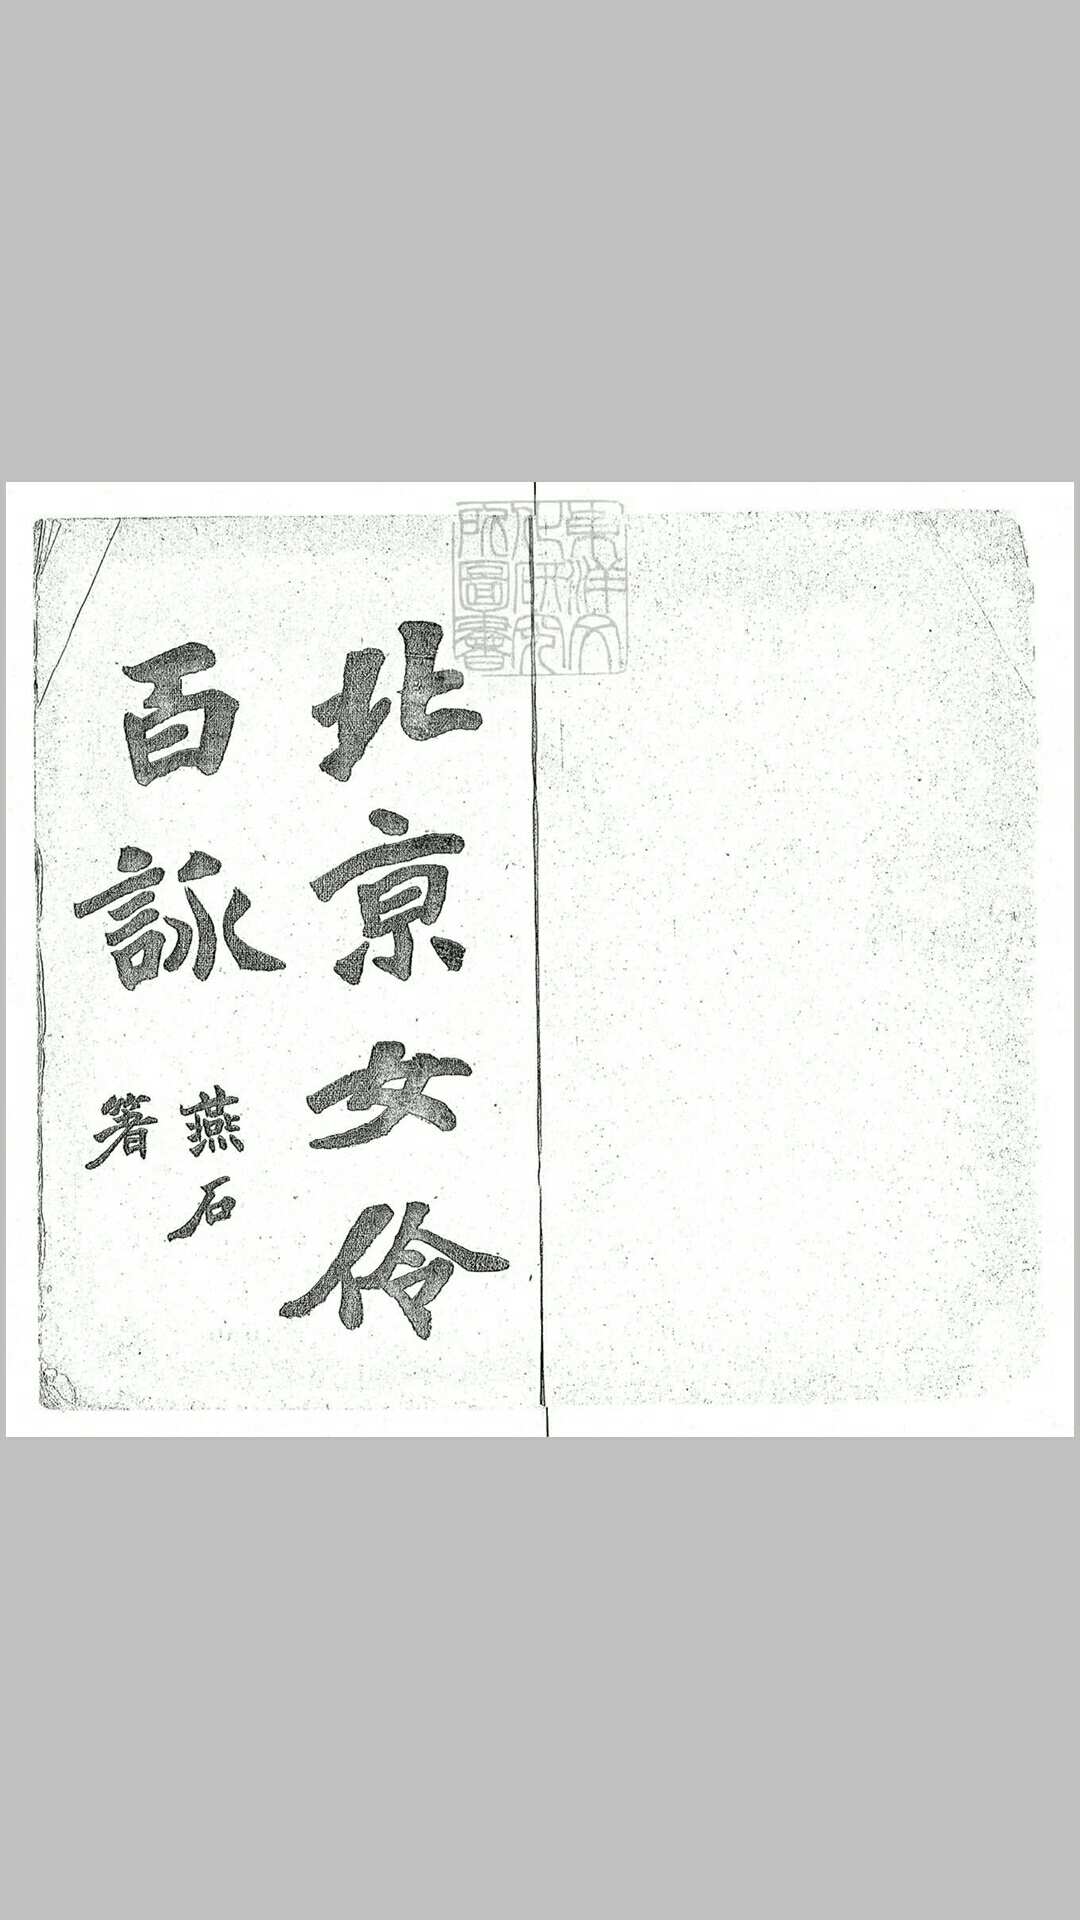 東洋文
化研究
所圖書
北京女伶
百詠
燕石
著